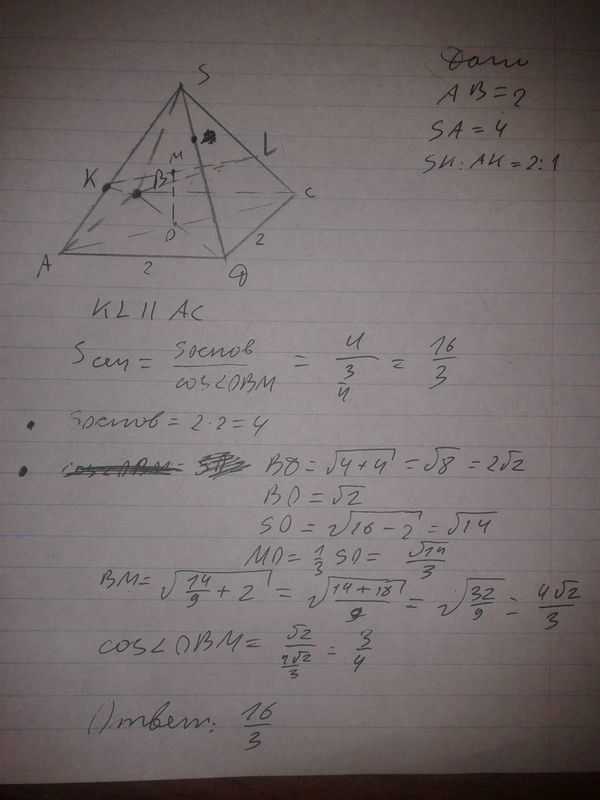 Дано
AB=2
SA=4
SK:AK=2:1
S
K
M
L
B
C
O
A
D
2
2
KL || AC
Sсеч = Sоснов / cos∠OBM = 4 / (3/4) = 16/3
• Sоснов = 2·2=4
• BD = √(4+4) = √8 = 2√2
BO = √2
SO = √(16-2) = √14
MO = 1/3 SO = √14/3
BM = √(14/9 + 2) = √((14+18)/9) = √(32/9) = 4√2/3
cos∠OBM = √2 / (4√2/3) = 3/4
Ответ: 16/3